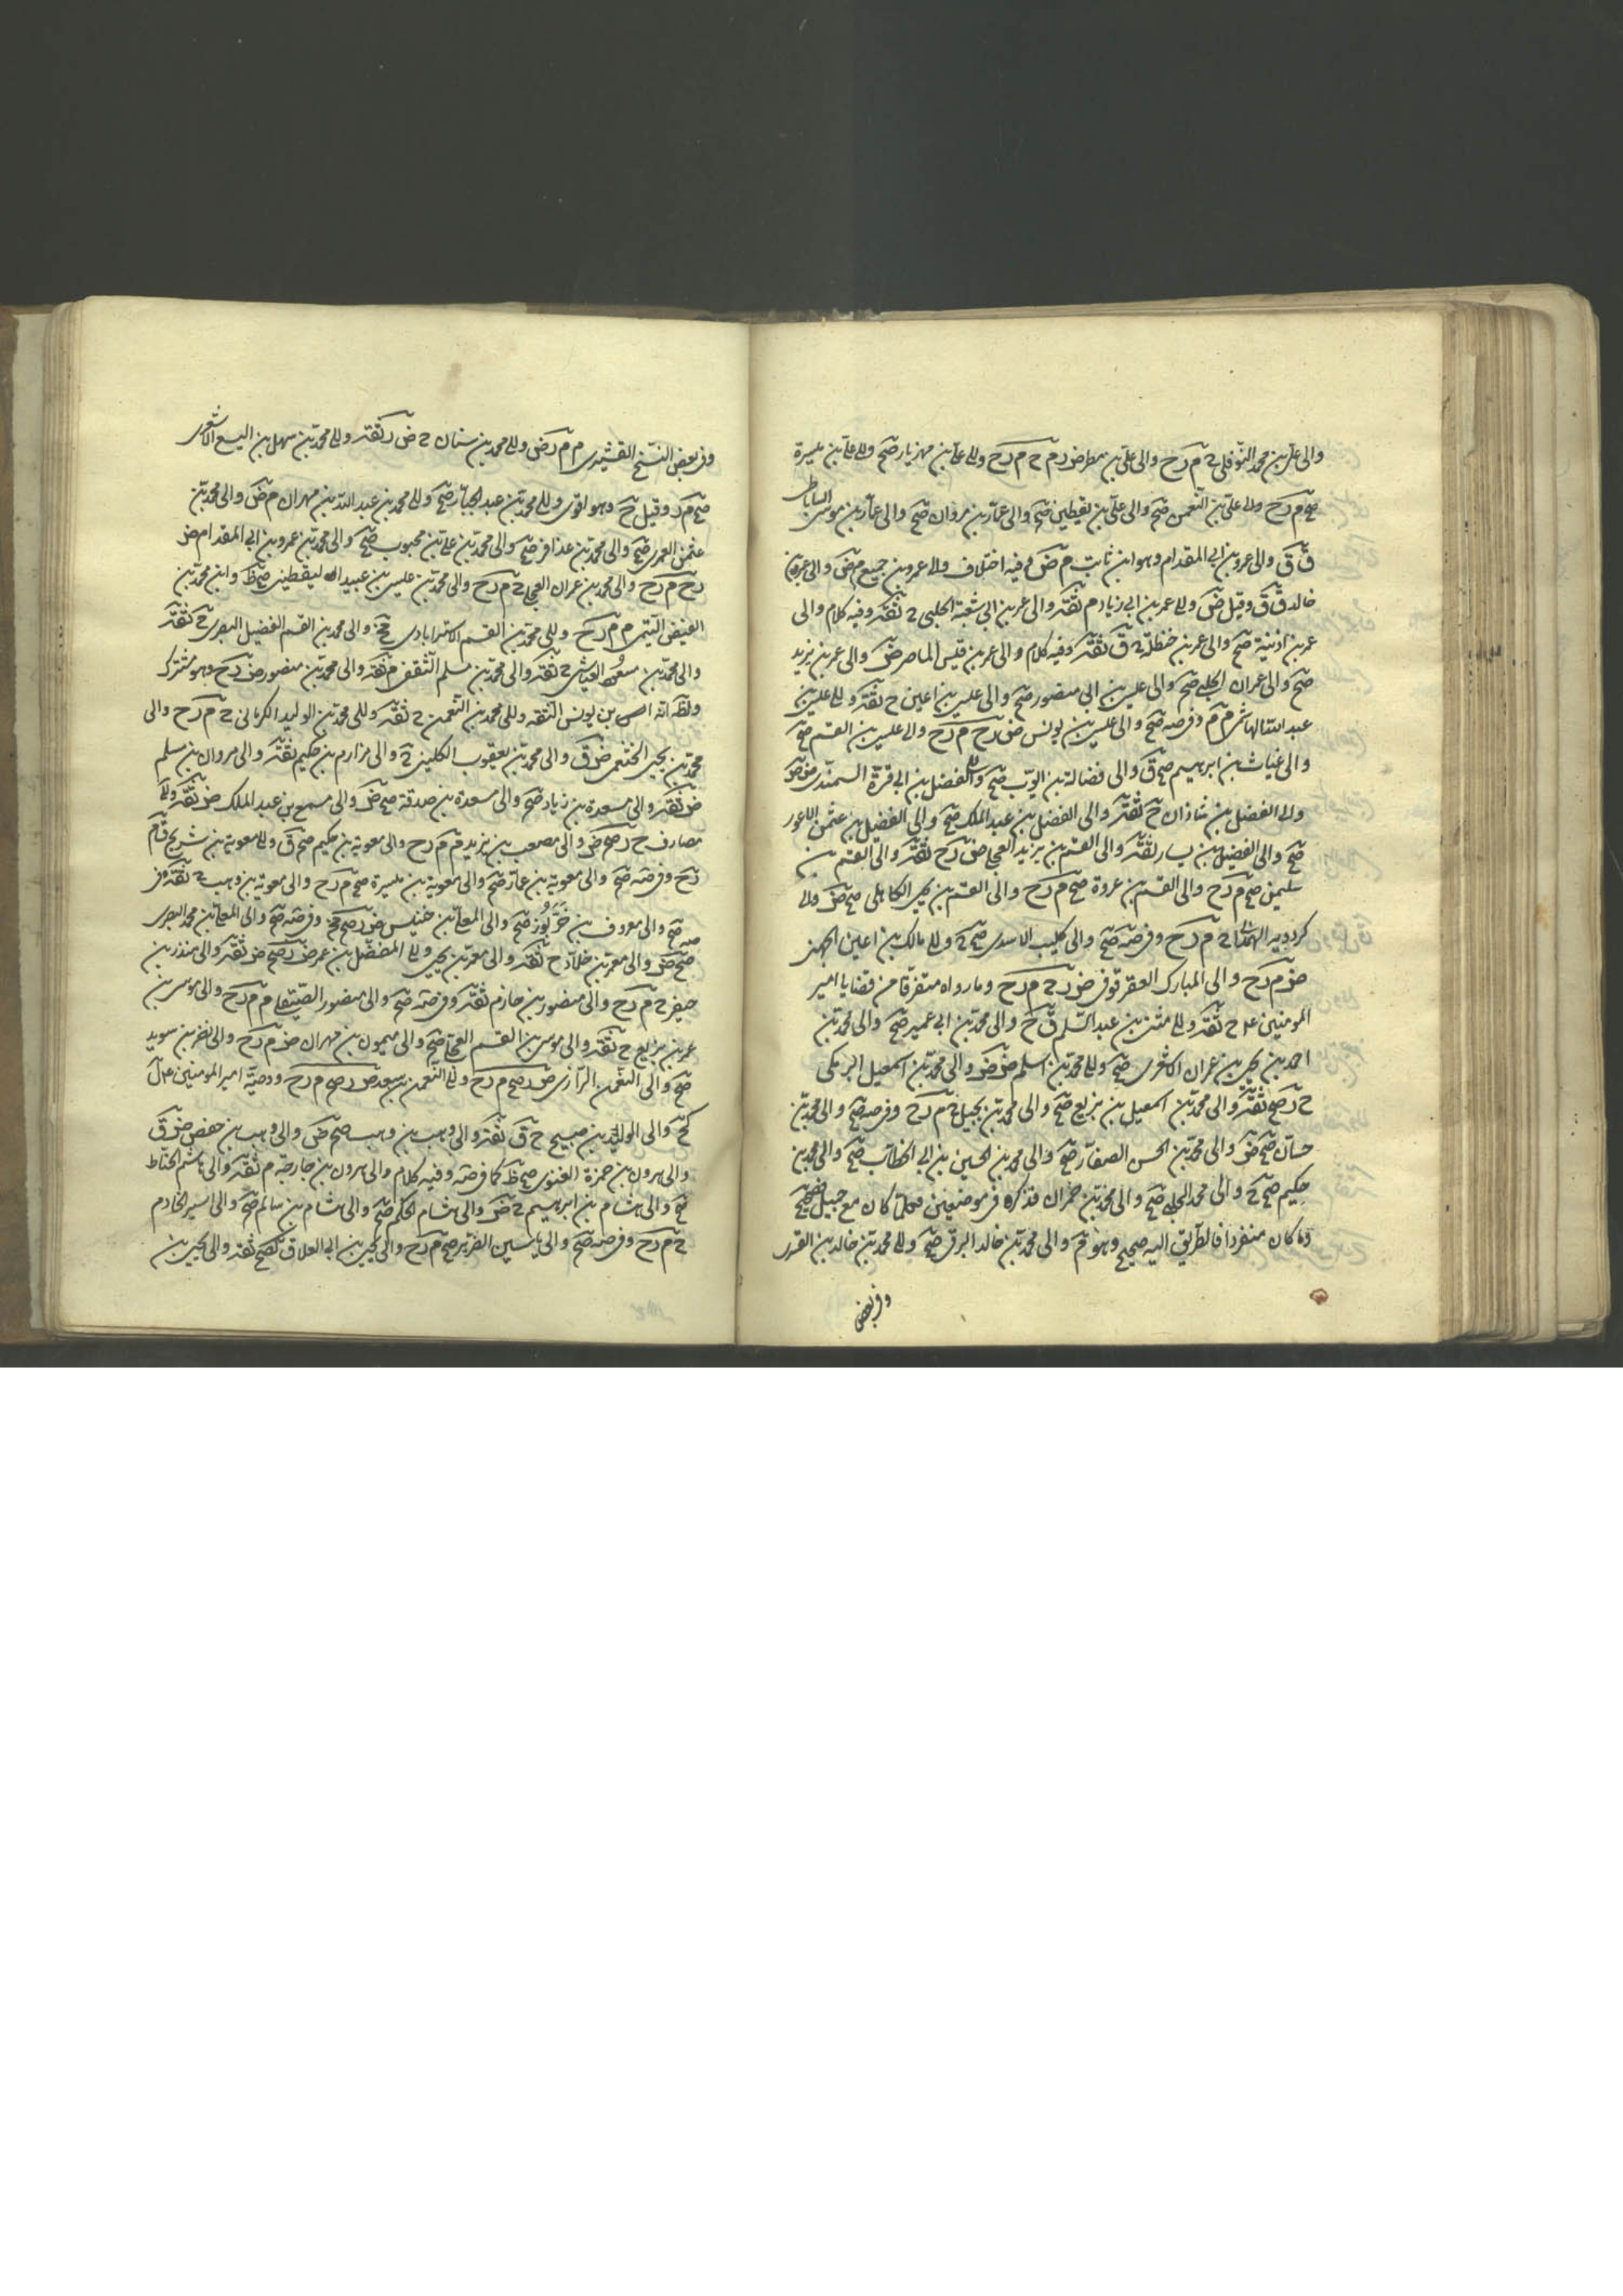 والى على بن محمد النوفلى م رح والى على بن مطر ض رم م رح والى على بن مهزيار صح والى على بن ميسرة
صح م رح والى على بن النعمن صح والى على بن يقطين صح والى عمار بن مروان صح والى عمار بن موسى الساباطى
ق ق والى عمرو بن ابى المقدام وهو ابن ثابت م ض وفيه اختلاف والى عمرو بن جميع م ض والى عمرو بن
خالد ق ق وقيل ض والى عمر بن ابى زياد م ثقة والى عمر بن ابى شعبة الحلبى ثقة وفيه كلام والى
عمر بن اذينة صح والى عمر بن حنظلة ق ثقة وفيه كلام والى عمر بن قيس الماصر ض والى عمر بن يزيد
صح والى عمران الحلبى صح والى عيسى بن ابى منصور صح والى عيسى بن اعين ح ثقة والى عيسى بن
عبد الله الهاشمى م م وفى صه صح والى عيسى بن يونس ض رح م رح والى عيسى بن القسم صح
والى غياث بن ابرهيم صح ق والى فضالة بن ايوب صح والى الفضل بن ابى قرة السمندى ض
والى الفضل بن شاذان ح ثقة والى الفضل بن عبد الملك صح والى الفضيل بن عثمن الاعور
صح والى الفضيل بن يسار ثقة والى القسم بن بريد العجلى ض رح ثقة والى القسم بن
سليمن صح م رح والى القسم بن عروة صح م رح والى القسم بن يحيى الكاهلى صح ض والى
كردويه الهمدانى م رح وفى صه صح والى كليب الاسدى صح والى مالك بن اعين الجهنى
ض م رح والى المبارك العقرقوفى ض ر م رح وما رواه متفرقا من قضايا امير
المومنين ع ح ثقة والى مثنى بن عبد السلم ق ح والى محمد بن ابى عمير صح والى محمد بن
احمد بن يحيى بن عمران الاشعرى صح والى محمد بن اسلم ض ض والى محمد بن اسمعيل البرمكى
ح ر صح ثقة والى محمد بن اسمعيل بن بزيع صح والى محمد بن بجيل م رح وفى صه صح والى محمد بن
حسان صح ض والى محمد بن الحسن الصفار صح والى محمد بن الحسين بن ابى الخطاب صح والى محمد بن
حكيم صح والى محمد الحلبى صح والى محمد بن حمران فذكره فى موضعين فكلما كان مع جميل فصحيح
وما كان منفردا فالطريق اليه صحيح وهو ثم والى محمد بن خالد البرقى صح والى محمد بن خالد بن القسرى
وفى بعض
وفى بعض النسخ القشيرى م م رض والى محمد بن سنان ض ر ثقة والى محمد بن سهل بن اليسع الاشعرى
صح م ر وقيل ح وهو اقوى والى محمد بن عبد الجبار صح والى محمد بن عبد الله بن مهران م ض والى محمد بن
عثمن العمرى صح والى محمد بن عذافر صح والى محمد بن على بن محبوب صح والى محمد بن عمرو بن ابى المقدام ض
رح م رح والى محمد بن عمران العجلى م رح والى محمد بن عيسى بن عبيد اليقطينى صح ظ وابن محمد بن
الفيض التيمى م م رح والى محمد بن القسم الاسترابادى والى محمد بن القسم الفضيل البصرى ثقة
والى محمد بن مسعود العياشى ثقة والى محمد بن مسلم الثقفى م ثقة والى محمد بن منصور ض رح وهو مشترك
ولظ انه بن يونس الثقة والى محمد بن النعمن ثقة والى محمد بن الوليد الكرمانى م رح والى
محمد بن يحيى الخثعمى ض ق والى محمد بن يعقوب الكلينى والى مرازم بن حكيم ثقة والى مروان بن مسلم
ض ثقة والى مسعدة بن زياد صح والى مسعدة بن صدقة صح ض والى مسمع بن عبد الملك ض ثقة والى
مصادف ح ر صح ض والى مصعب بن يزيد ق م م رح والى معوية بن حكيم صح ق والى معوية بن شريح ق م
رح وفى صه صح والى معوية بن عمار صح والى معوية بن ميسرة صح م رح والى معوية بن وهب ثقة وفى
صه صح والى معروف بن خربوز صح والى المعلى بن خنيس ض ر صح وفى صه صح والى المعلى بن محمد البصرى
صح ض والى معمر بن خلاد ح ثقة والى معمر بن يحيى والى المفضل بن عمر ض ر صح ض ثقة والى منذر بن
جيفر م رح والى منصور بن حازم ثقة وفى صه صح والى منصور الصيقل م م رح والى موسى بن
عمر بن بزيع ح ثقة والى موسى بن القسم العجلى صح والى ميمون بن مهران ض م رح والى نضر بن سويد
صح والى النعمن الرازى ض ر صح م رح والى النعمن بن سعد ض ر صح م رح ووصية امير المومنين
والى الوليد بن صبيح ح ق ثقة والى وهب بن وهب صح ض والى وهيب بن حفص ض ق
والى هرون بن حمزة الغنوى صح ظ كما فى صه وفيه كلام والى هرون بن خارجة م ثقة والى هاشم الحناط
صح والى هشام بن ابرهيم ض والى هشام الحكم صح والى هشام بن سالم صح والى ياسر الخادم
م رح وفى صه صح والى ياسين الضرير صح م رح والى يحيى بن ابى العلا ق صح ثقة والى يحيى بن